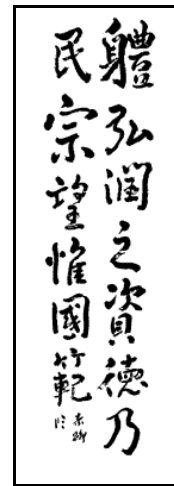 體弘潤之資德乃
民宗望惟國範